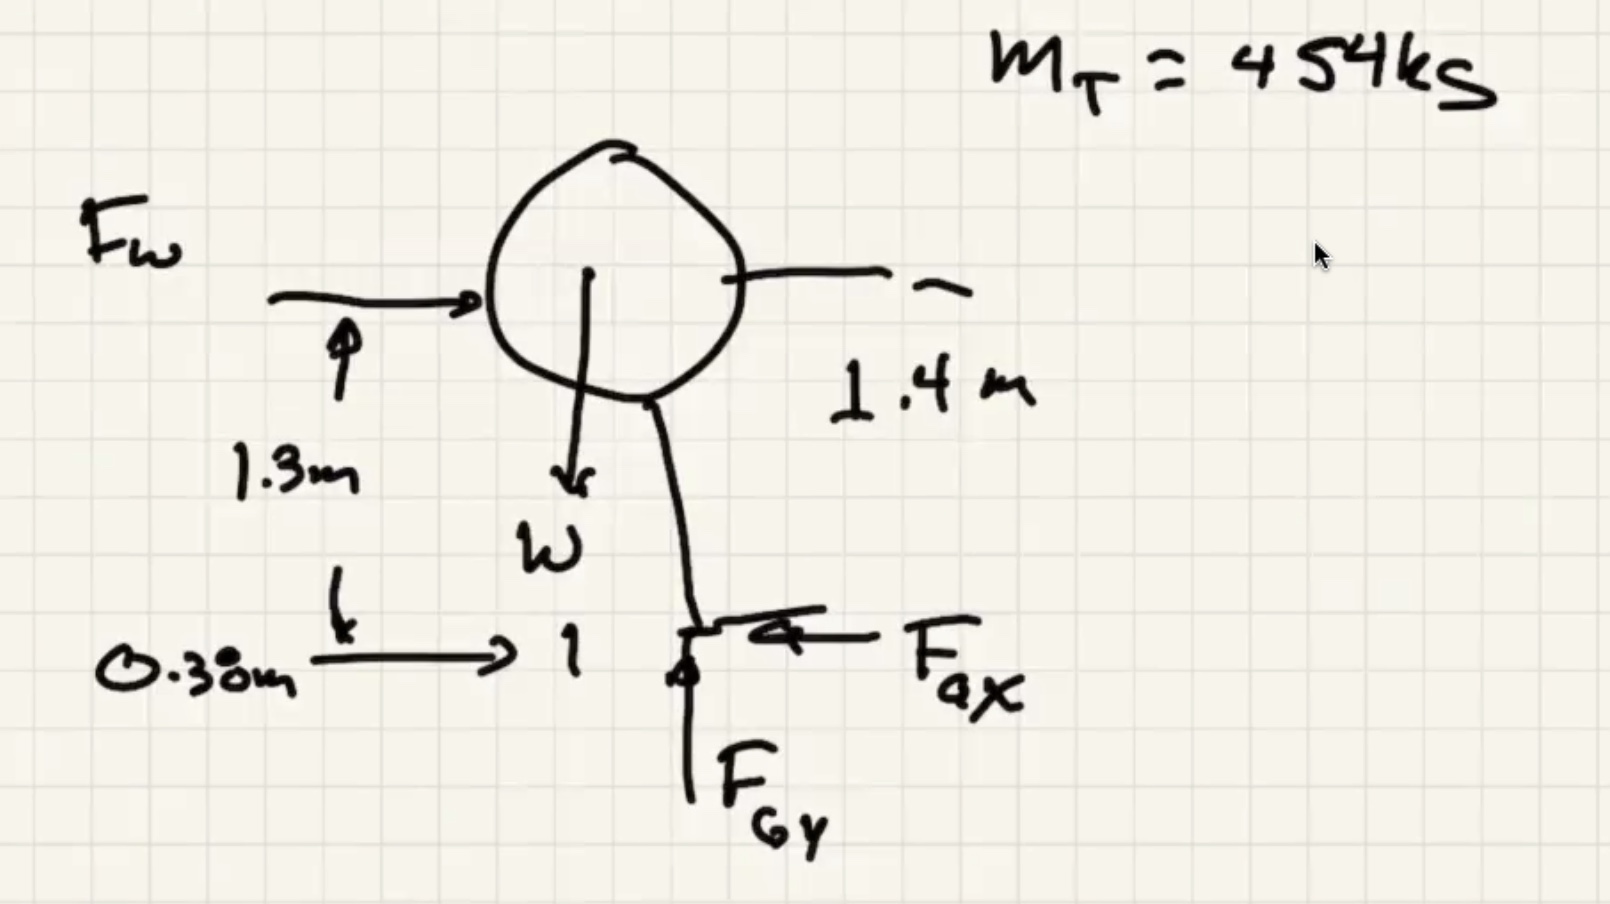 m_T = 454kg
F_w
1.4 m
1.3m
W
0.30m
F_Gx
F_Gy